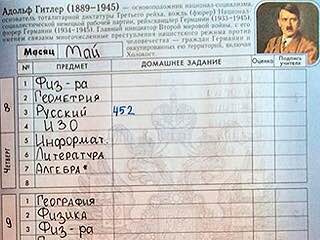 Адольф Гитлер (1889–1945) — основоположник национал-социализма,
основатель тоталитарной диктатуры Третьего рейха, вождь (фюрер) Национал-
социалистической немецкой рабочей партии, рейхсканцлер Германии (1933–1945),
фюрер Германии (1934–1945). Главный инициатор Второй мировой войны, с его
именем связаны многочисленные преступления нацистского режима против
человечества — граждан Германии и
оккупированных ею территорий, включая
Холокост.
Месяц Май
№ ПРЕДМЕТ ДОМАШНЕЕ ЗАДАНИЕ Оценка Подпись учителя
8
Четверг
1 Физ-ра
2 Геометрия
3 Русский 452
4 ИЗО
5 Информат.
6 Литература
7 Алгебра*
8
9
1 География
2 Физика
3 Физ-ра